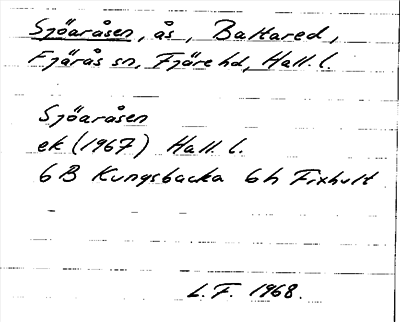 Sjöaråsen, ås, Battared,
Fjärås sn, Fjäre hd, Hall. l.
Sjöaråsen
ek (1967) Hall. l.
6 B Kungsbacka 6h Fixhult
L.F. 1968.